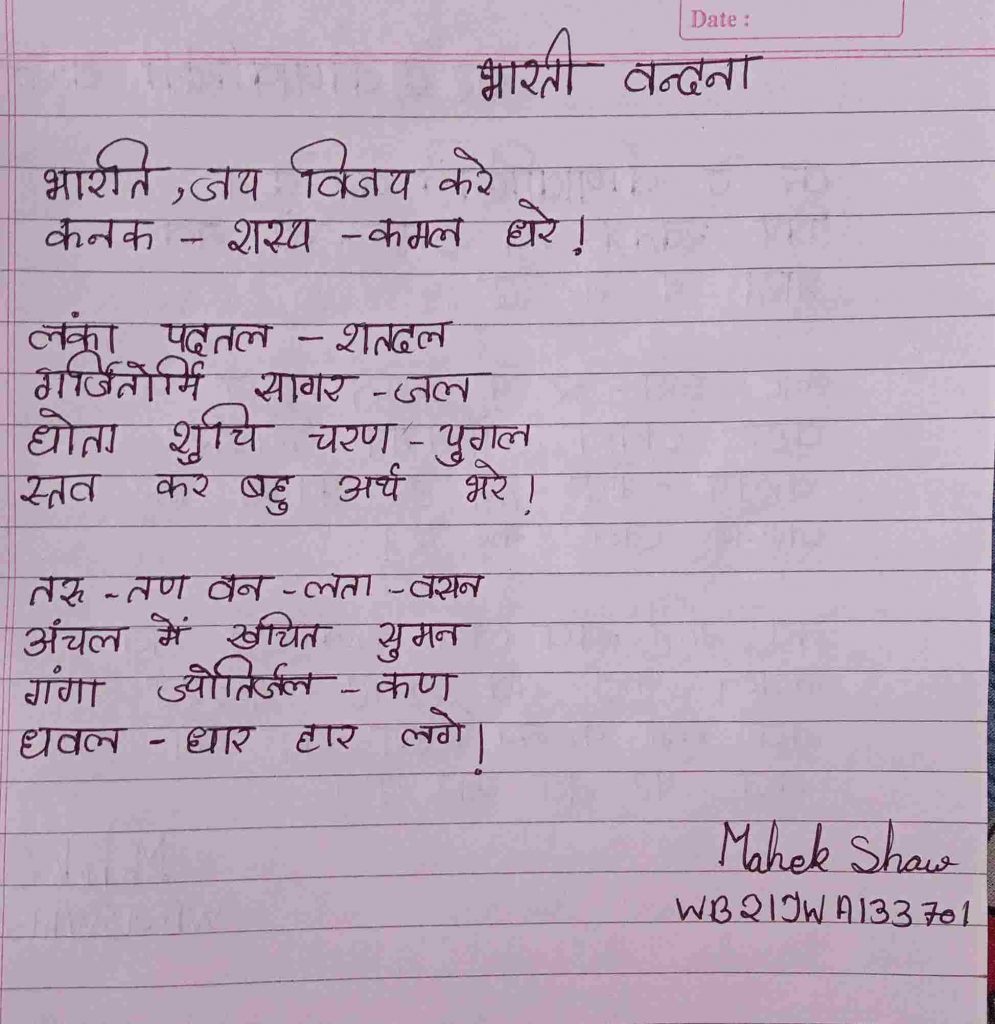 Date :
भारती वन्दना
भारति , जय विजय करे
कनक - शस्य - कमल धरे !
लंका पदतल - शतदल
गर्जितोर्मि सागर - जल
धोता शुचि चरण - युगल
स्तव कर बहु अर्थ भरे !
तरु - तण वन - लता - वसन
अंचल में खचित सुमन
गंगा ज्योतिर्जल - कण
धवल - धार हार लगे !
Mahek Shaw
WB21JWA133701